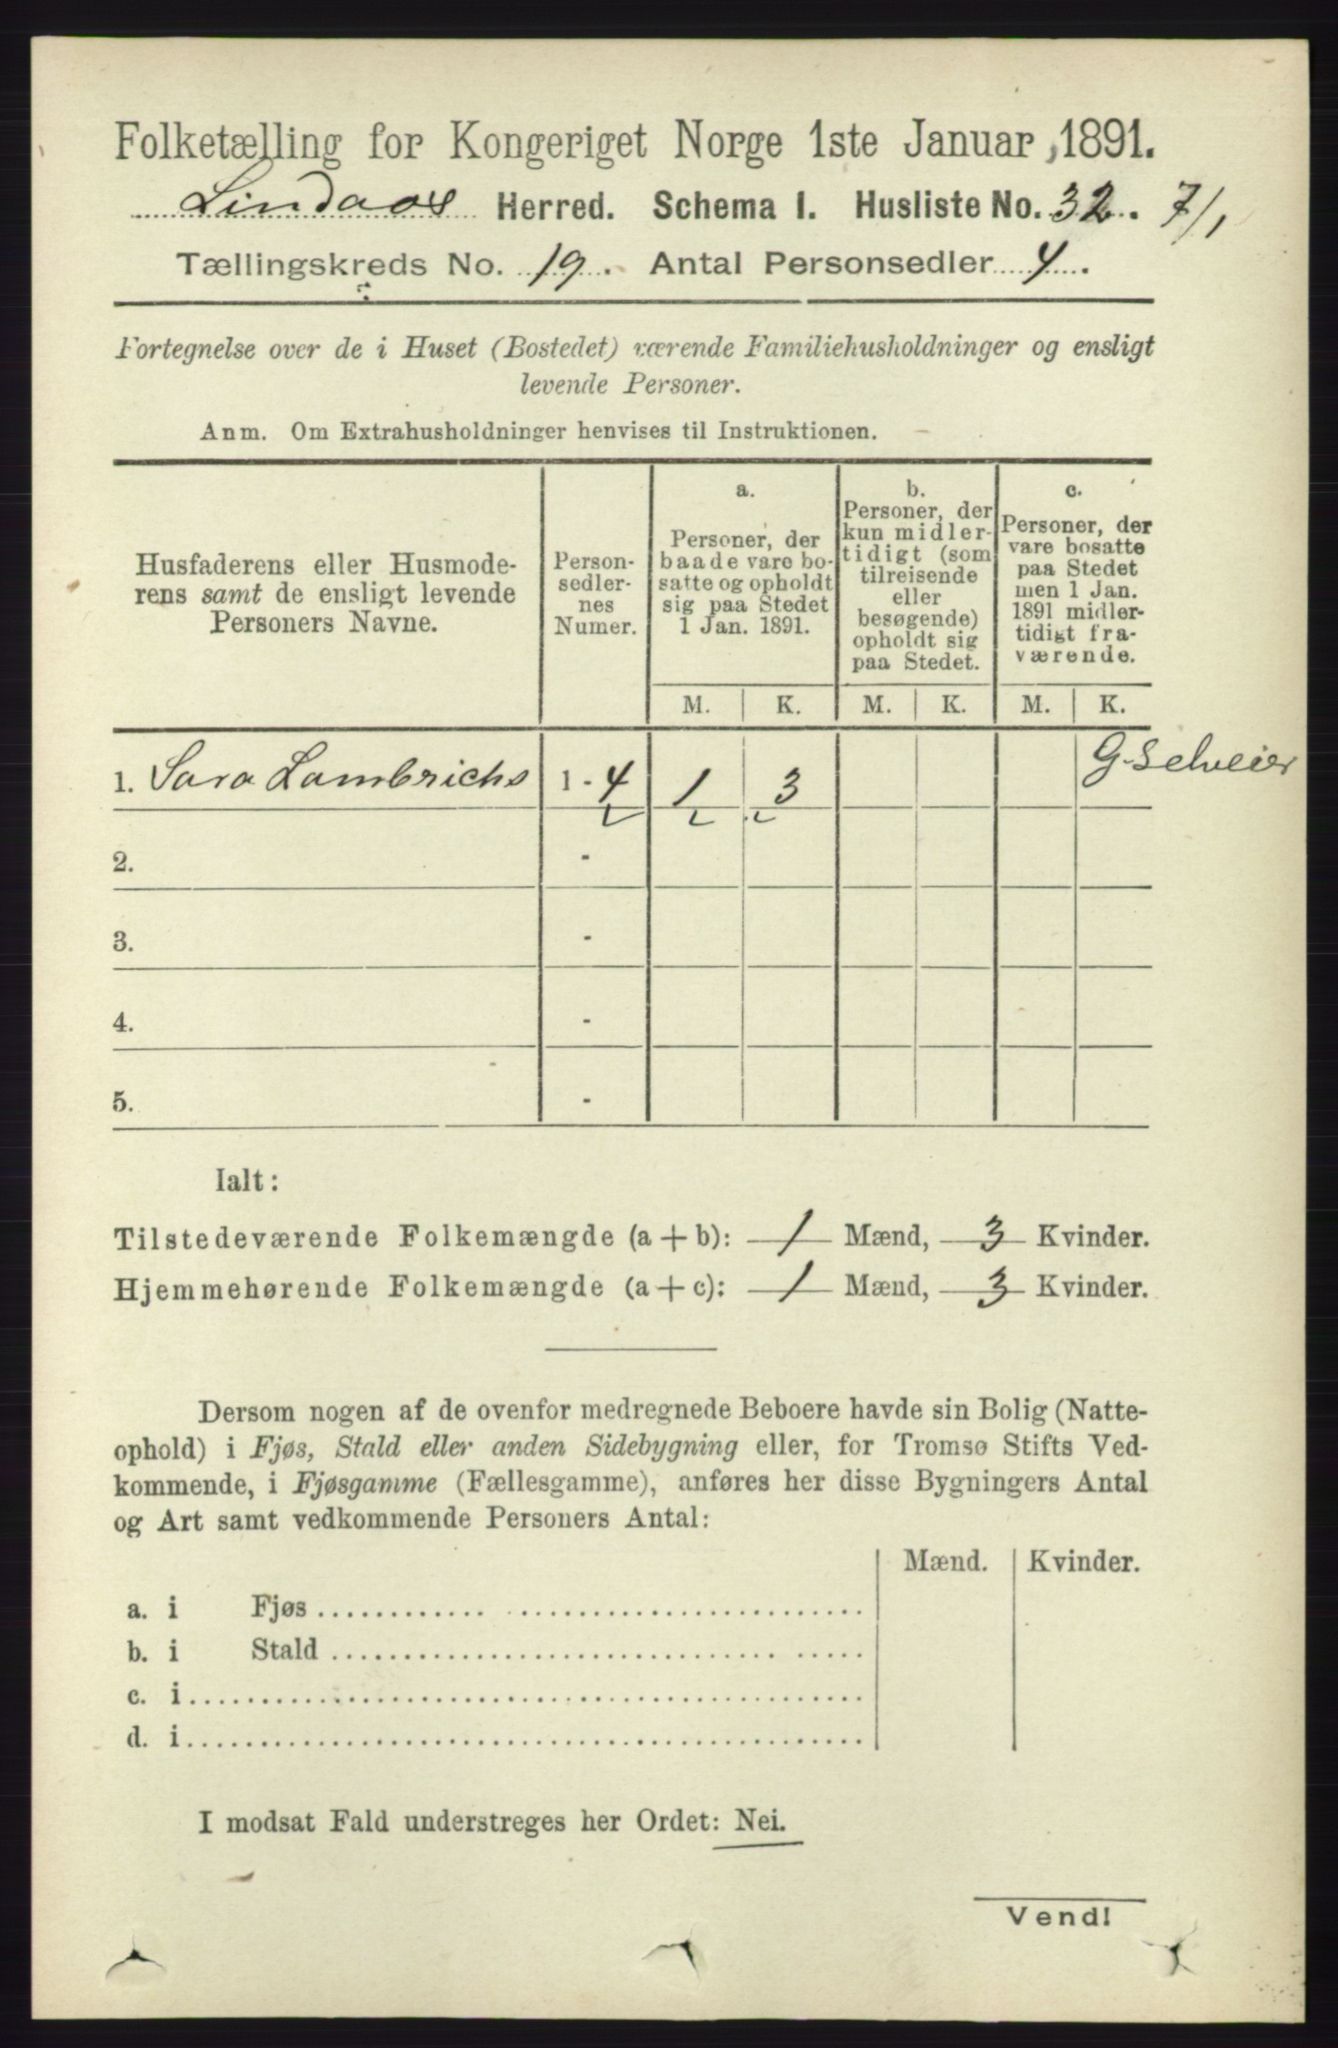 Folketælling for Kongeriget Norge 1ste Januar 1891.
Lindaas Herred. Schema I. Husliste No. 32. 7/1
Tællingskreds No. 19. Antal Personsedler 4.
Fortegnelse over de i Huset (Bostedet) værende Familiehusholdninger og ensligt
levende Personer.
Anm. Om Extrahusholdninger henvises til Instruktionen.
Husfaderens eller Husmode-
rens samt de ensligt levende
Personers Navne.
Person-
sedler-
nes
Numer.
a.
Personer, der
baade vare bo-
satte og opholdt
sig paa Stedet
1 Jan. 1891.
b.
Personer, der
kun midler-
tidigt (som
tilreisende
eller
besøgende)
opholdt sig
paa Stedet.
c.
Personer, der
vare bosatte
paa Stedet
men 1 Jan.
1891 midler-
tidigt fra-
værende.
M. K. M. K. M. K.
1. Sara Lambrichs 1 - 4 1 3 G-Selveier
2. -
3. -
4. -
5. -
Ialt:
Tilstedeværende Folkemængde (a + b): 1 Mænd, 3 Kvinder.
Hjemmehørende Folkemængde (a + c): 1 Mænd, 3 Kvinder.
Dersom nogen af de ovenfor medregnede Beboere havde sin Bolig (Natte-
ophold) i Fjøs, Stald eller anden Sidebygning eller, for Tromsø Stifts Ved-
kommende, i Fjøsgamme (Fællesgamme), anføres her disse Bygningers Antal
og Art samt vedkommende Personers Antal:
Mænd. Kvinder.
a. i Fjøs
b. i Stald
c. i
d. i
I modsat Fald understreges her Ordet: Nei.
Vend!